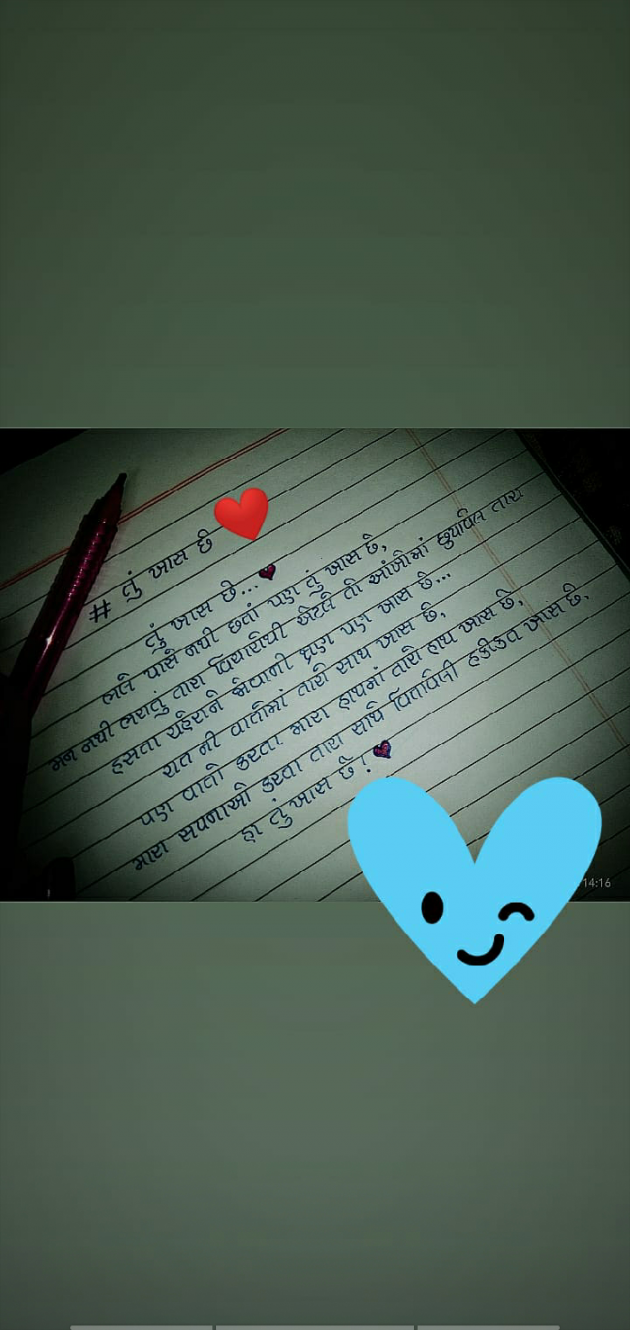 # તું ખાસ છે
તું ખાસ છે...
ભલે પાસે નથી છતાં પણ તું ખાસ છે,
મન નથી ભરાતું તારા વિચારોથી એટલે તો આંખોમાં છુપાવેલ તારા
હસતા ચહેરાને જોવાની ક્ષણ પણ ખાસ છે...
રાત ની વાતોમાં તારો સાથ ખાસ છે,
પણ વાતો કરતા મારા હાથમાં તારો હાથ ખાસ છે,
મારા સપનાઓ કરવા તારા સાથે વિતાવેલી હકીકત ખાસ છે,
હા તું ખાસ છે!
14:16